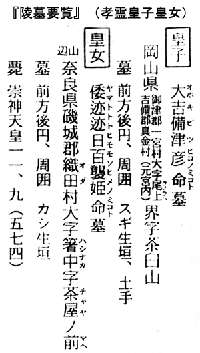 『陵墓要覧』（孝霊皇子皇女）
皇子
オホキビツヒコノミコト
大吉備津彦命墓
岡山県 御津郡一宮村大字尾上 吉備郡真金村（元宮内） 界字茶臼山
墓 前方後円、周囲 スギ生垣、土手
皇女
ヤマトトトビモモソヒメノミコト
倭迹迹日百襲姫命墓
山辺
オダ ハシナカ チャヤ マヘ
奈良県磯城郡織田村大字箸中字茶屋ノ前
墓 前方後円、周囲 カシ生垣
薨 崇神天皇一一、九（五七四）